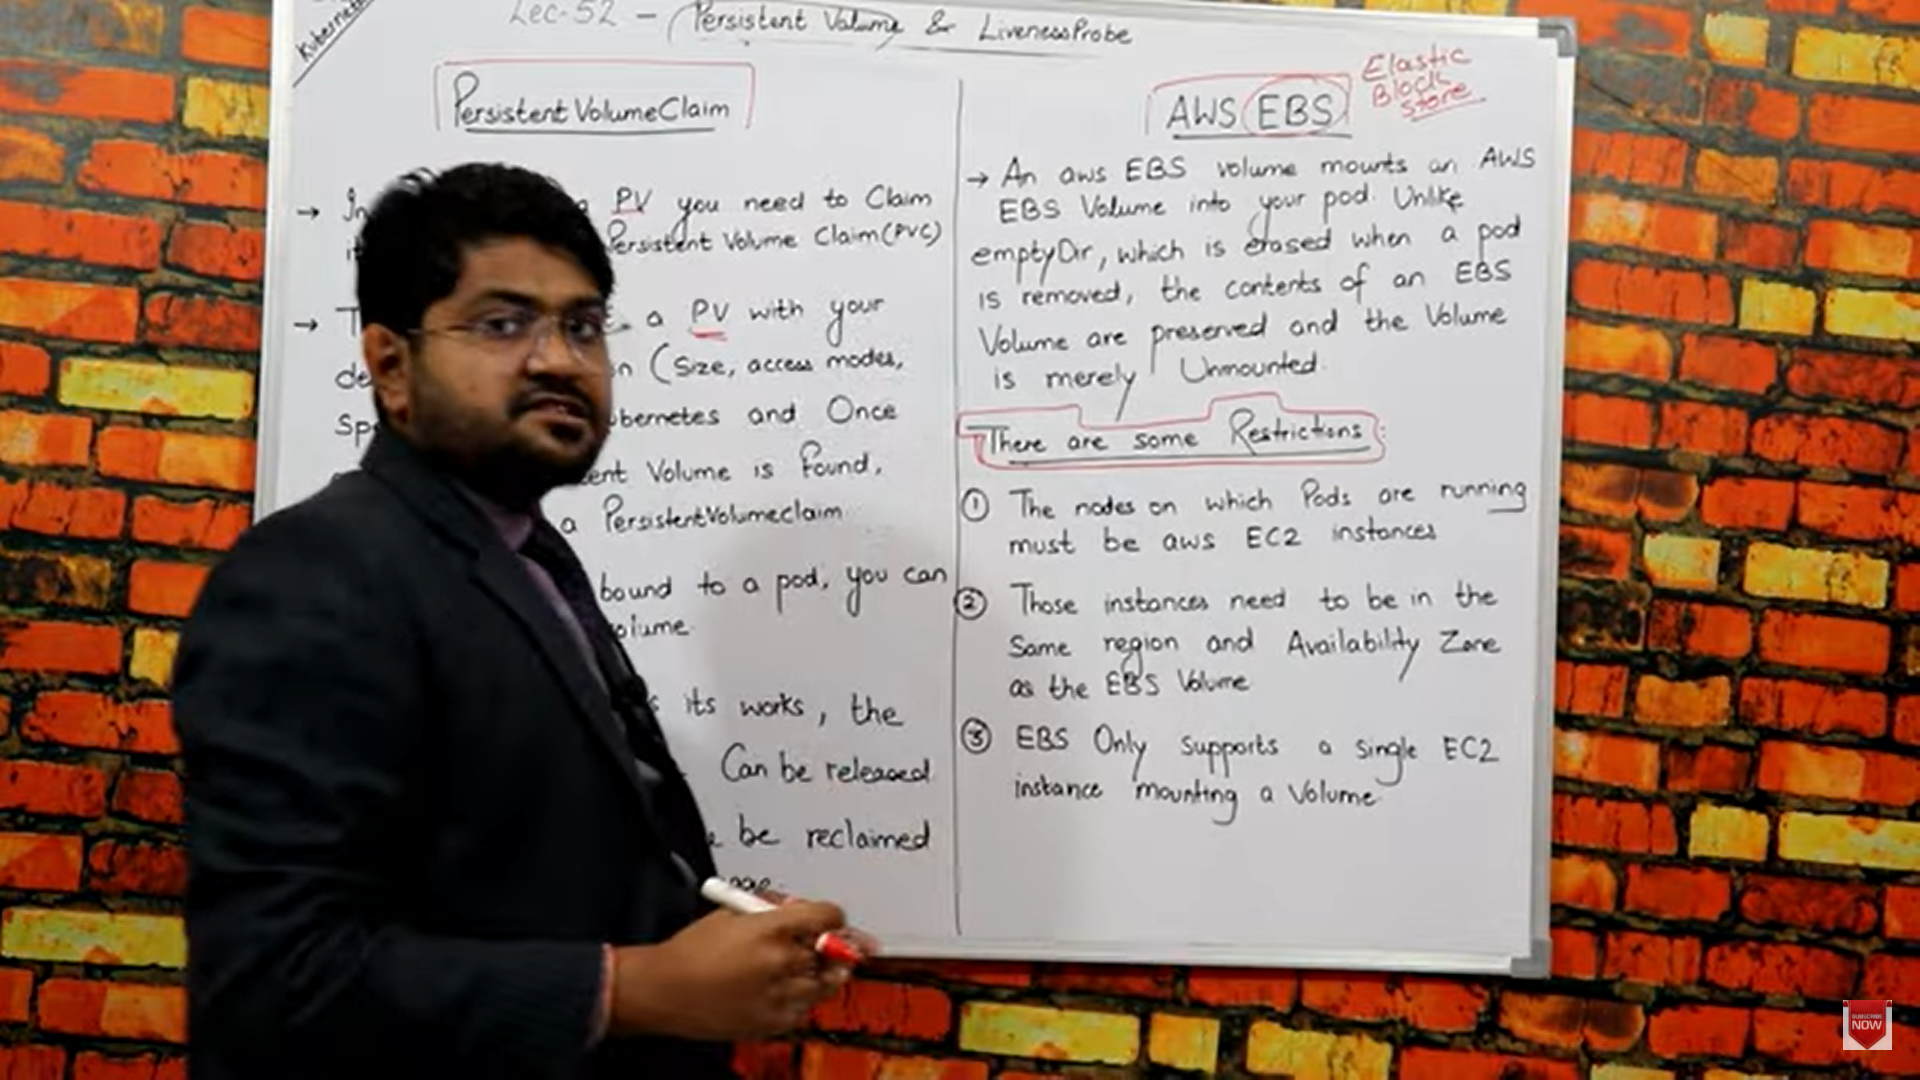 Kubernetes
Lec-52 - Persistent Volume & LivenessProbe
PersistentVolumeClaim
→ In PV you need to Claim
Persistent Volume Claim(PVC)
→ a PV with your
(Size, access modes,
and Once
Volume is found,
a PersistentVolumeclaim
bound to a pod, you can
its works, the
Can be released
be reclaimed
AWS EBS
Elastic
Block
Store
→ An aws EBS volume mounts an AWS
EBS Volume into your pod. Unlike
emptyDir, which is erased when a pod
is removed, the contents of an EBS
Volume are preserved and the Volume
is merely Unmounted.
There are some Restrictions:
① The nodes on which Pods are running
must be aws EC2 instances
② Those instances need to be in the
Same region and Availability Zone
as the EBS Volume
③ EBS Only supports a single EC2
instance mounting a Volume.
SUBSCRIBE
NOW